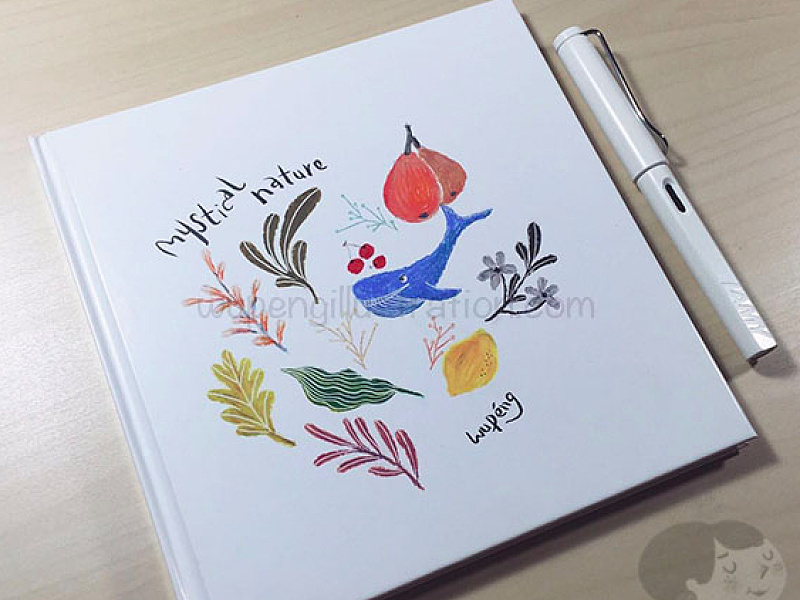 mystical nature
wupengillustration.com
LAMY
wupéng